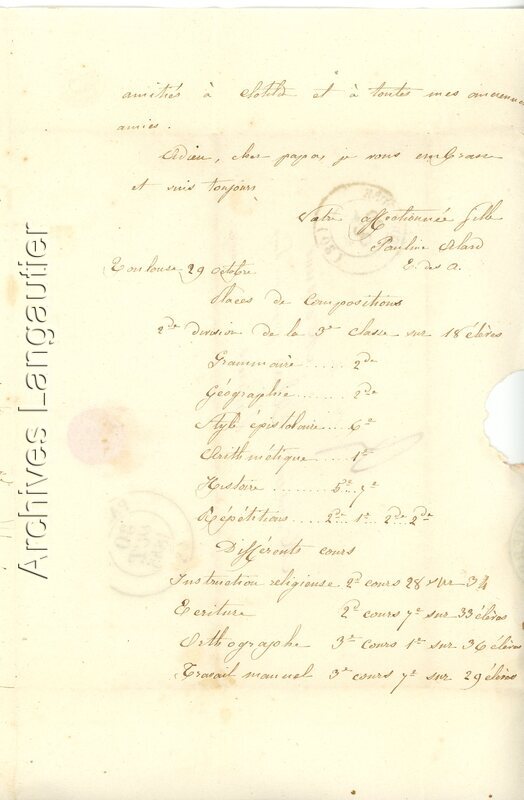 amitiés à Clotild et à toutes mes anciennes
amies.
Adieu, cher papa, je vous embrasse
et suis toujours
Votre affectionnée fille
Pauline Alard
E. des A.
Toulouse 29 octobre
Places de compositions
2de division de la 3e classe sur 18 élèves
Grammaire ..... 2de
Géographie ..... 2de
Style épistolaire ... 6e
Arithmétique .... 1e
Histoire ....... 5e .. 7e
Répétitions .... 2de 1e 2de 2de
Différents cours
Instruction religieuse 2d cours 28 sur 34
Ecriture 2d cours 7e sur 33 élèves
Orthographe 3e cours 1e sur 36 élèves
Travail manuel 3e cours 7e sur 29 élèves
Archives Langautier